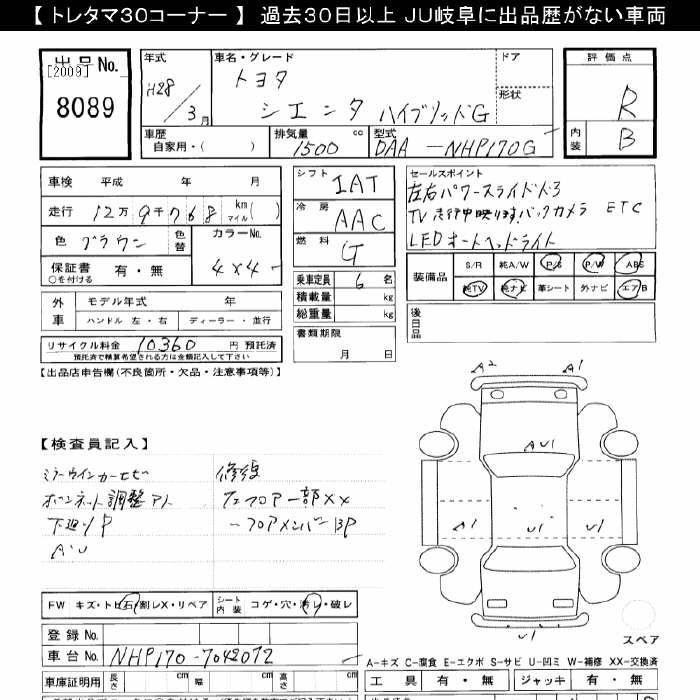 【 トレタマ30コーナー 】 過去30日以上 JU岐阜に出品歴がない車両
出品No.
[2009]
8089
年式
H28/3月
車名・グレード
トヨタ
シエンタ ハイブリッドG
ドア
形状
評価点
R
内装 B
車歴
自家用・( )
排気量 cc
1500
型式
DAA-NHP170G
車検 平成 年 月
走行 12万9千768 km マイル( )
色 ブラウン 色替
カラーNo.
4X4
保証書 有・無
○を付ける
シフト IAT
冷房 AAC
燃料 G
乗車定員 6 名
積載量 kg
総重量 kg
書類期限
月 日
セールスポイント
左右パワースライドドア
TV走行中映ります バックカメラ ETC
LEDオートヘッドライト
装備品
S/R 純A/W P/S P/W ABS
純TV 純ナビ 革シート 外ナビ エアB
後日品
外車
モデル年式 年
ハンドル 左・右 ディーラー・並行
リサイクル料金 10360 円 預託済
預託済で精算希望される方は金額記入して下さい
【出品店申告欄(不良箇所・欠品・注意事項等)】
【検査員記入】
ミラーウインカーヒビ
ボンネット調整アト
下廻りP
AU
修復
フロアー部XX
フロアメンバーBP
A2 A1
AU1
A1 U1 U1
U1
スペア
FW キズ・トビ石・割レX・リペア
シート内装 コゲ・穴・汚レ・破レ
登録No.
車台No. NHP170-7042072
A-キズ C-腐食 E-エクボ S-サビ U-凹ミ W-補修 XX-交換済
車庫証明用 長さ cm 幅 cm 高さ cm
工具 有・無 ジャッキ 有・無